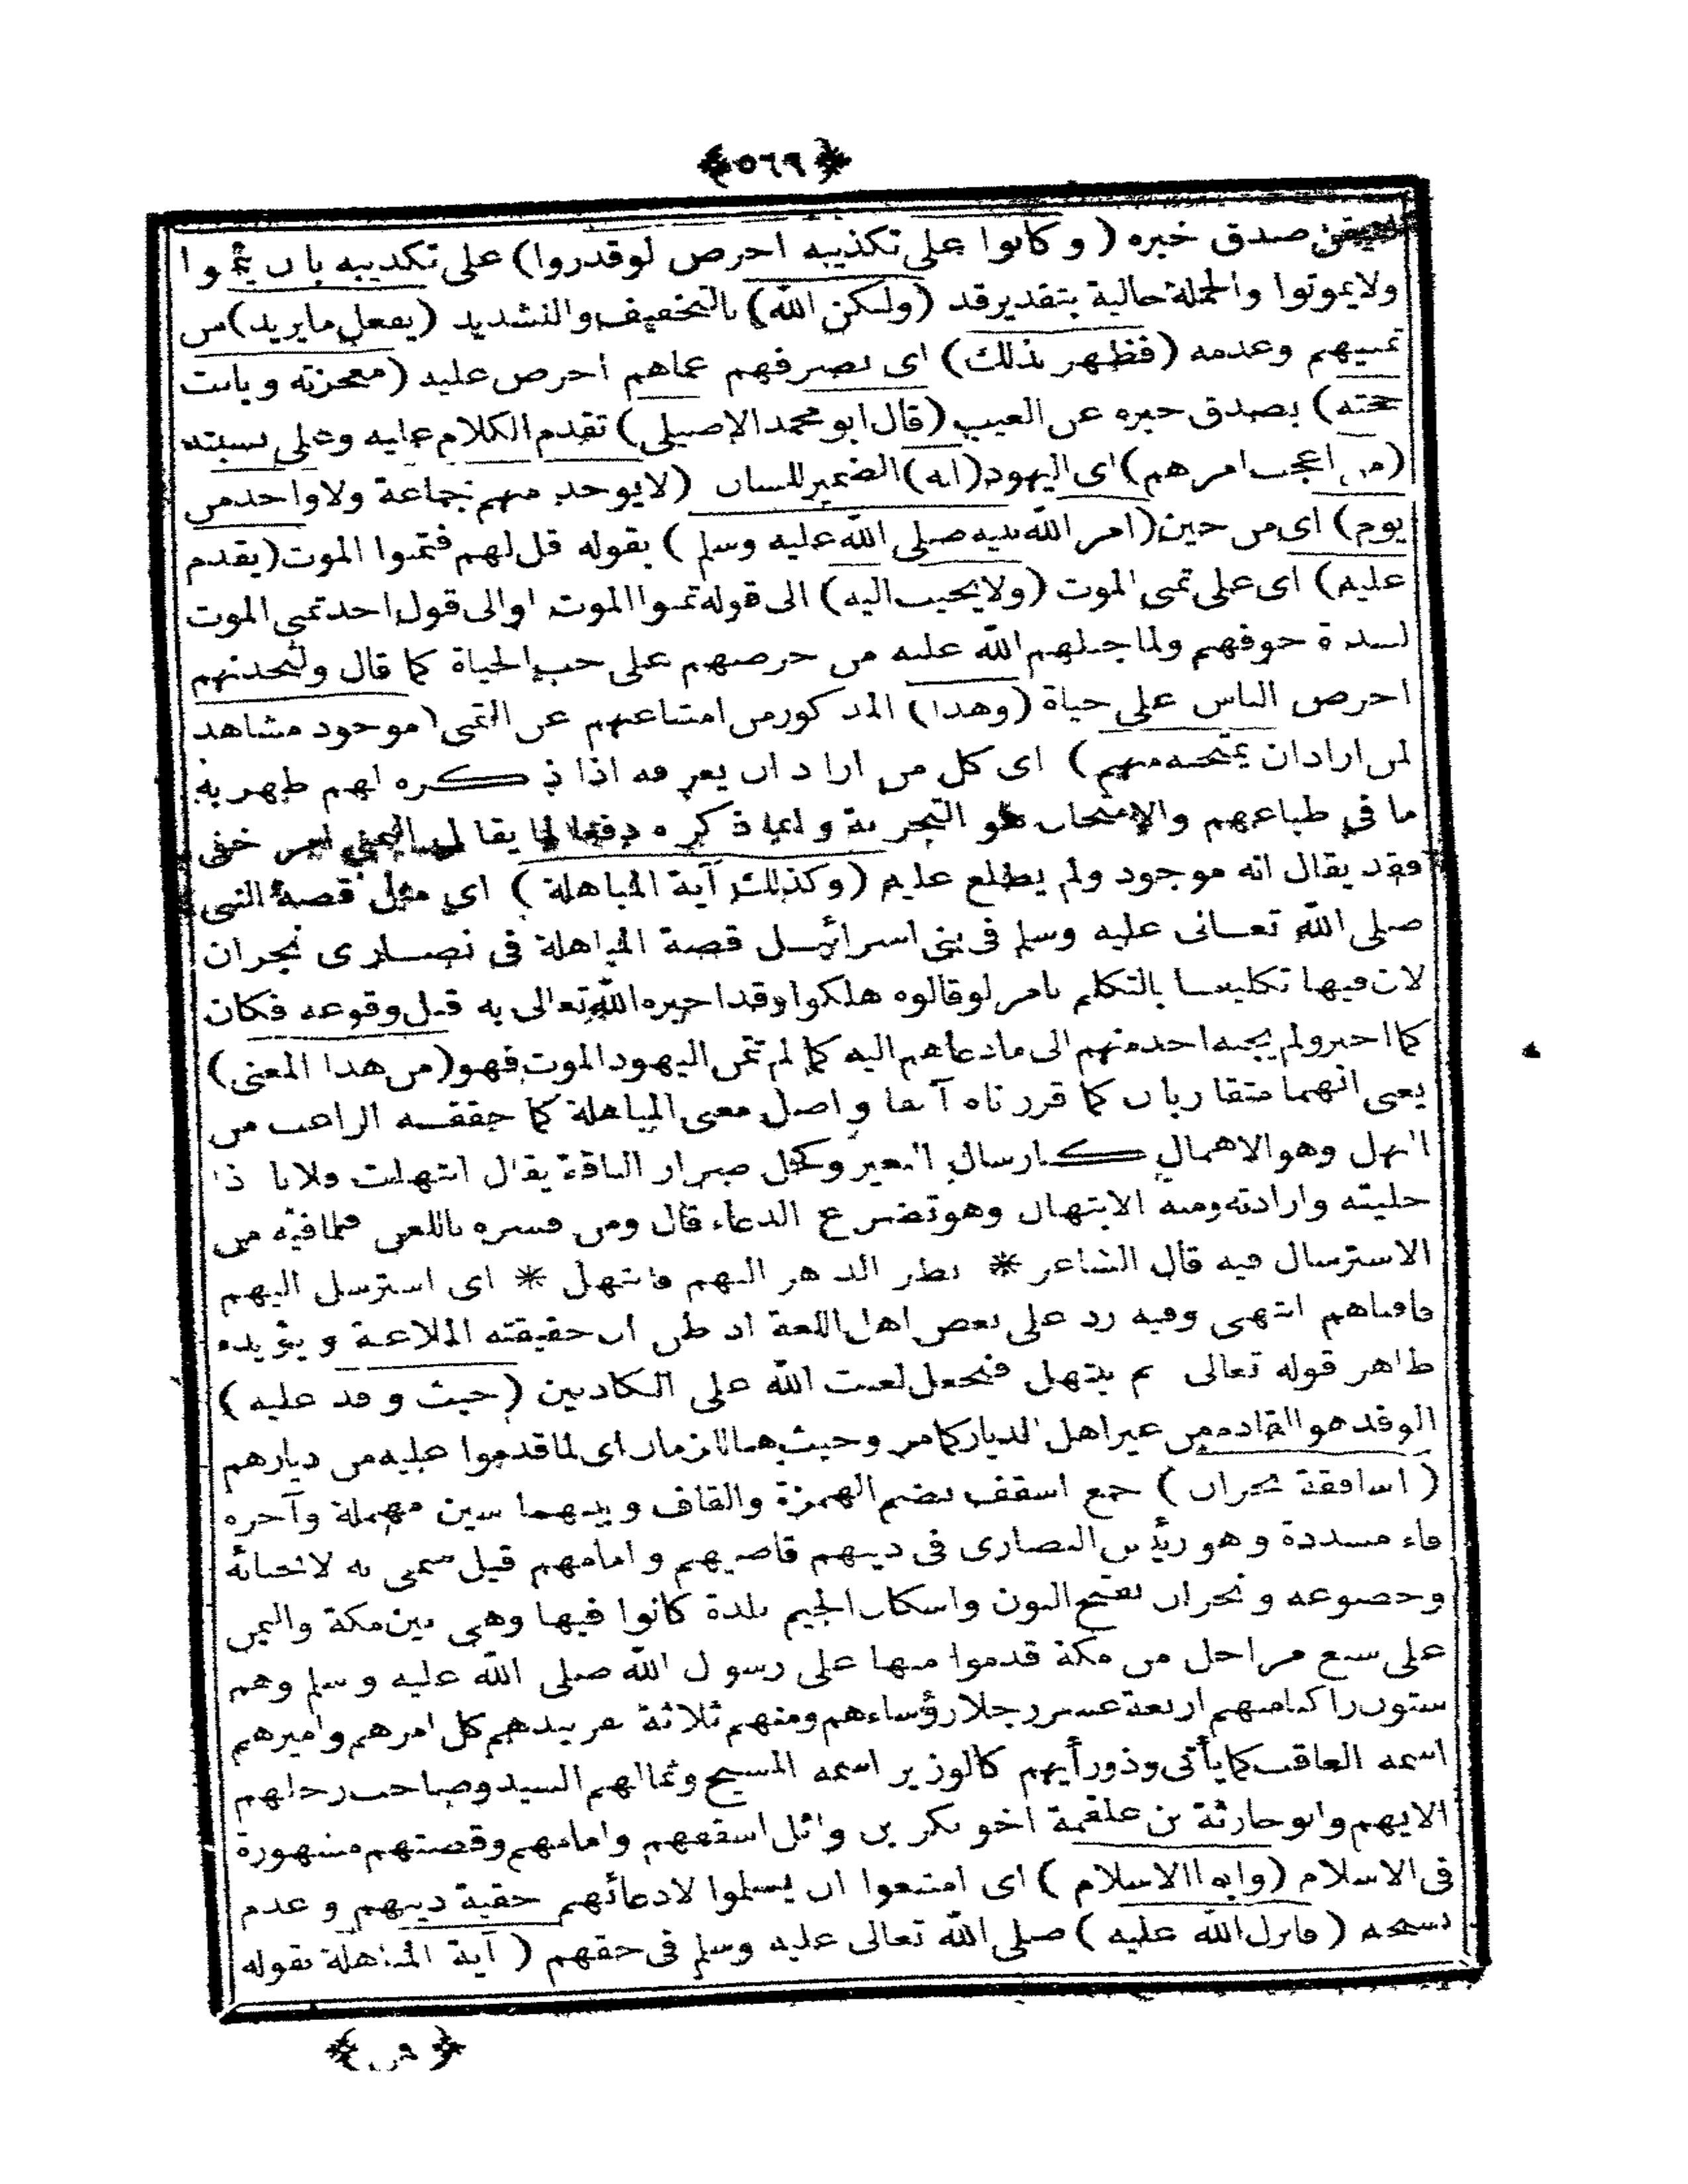 ﴿٥٦٩﴾
صدق خبره ( وكانوا على تكذيبه احرص لوقدروا) على تكذيبه بان يتمنوا
ولايموتوا والجملة حالية بتقدير قد (ولكن الله) بالتخفيف والتشديد (يفعل مايريد) من
تمنيهم وعدمه (فظهر بذلك) اى بصرفهم عماهم احرص عليه (معجزته وبانت
حجته) بصدق خبره عن الغيب (قال ابو محمد الاصيلى) تقدم الكلام عليه وعلى نسبته
(من اعجب امرهم) اى اليهود (انه) الضمير للشان (لايوجد منهم جماعة ولا واحد من
يوم) اى من حين (امر الله نبيه صلى الله عليه وسلم ) بقوله قل لهم فتمنوا الموت (يقدم
عليه) اى على تمنى الموت (ولايجيب اليه) الى قوله تمنوا الموت اوالى قول احد تمنى الموت
لشدة خوفهم ولما جبلهم الله عليه من حرصهم على حب الحياة كما قال ولتجدنهم
احرص الناس على حياة (وهذا) المذكور من امتناعهم عن التمنى (موجود مشاهد
لمن ارادان يمتحنه منهم) اى كل من اراد ان يعرفه اذا ذكره لهم ظهر به
ما فى طباعهم والامتحان هو التجربة وانما ذكره دفعا لما يقال التمنى امر خفى
فقد يقال انه موجود ولم يطلع عليه (وكذلك آية المباهلة ) اى مثل قصة النبى
صلى الله تعالى عليه وسلم فى بنى اسرائيل قصة المباهلة فى نصارى نجران
لان فيها تكليفا بالتكلم بامر لوقالوه هلكوا وقد اخبره الله تعالى به قبل وقوعه فكان
كما اخبر ولم يجبه احد منهم الى مادعاهم اليه كما لم تتمن اليهود الموت فهو (من هذا المعنى)
يعنى انهما متقاربان كما قررناه آنفا واصل معنى المباهلة كما حققه الراغب من
البهل وهو الاهمال كارسال البعير وكحل صرار الناقة يقال ابتهلت فلانا ذا
خليته وارادته ومنه الابتهال وهو تضرع الدعاء قال ومن فسره باللعن فلمافيه من
الاسترسال فيه قال الشاعر * نظر الدهر اليهم فابتهل * اى استرسل اليهم
فافناهم انتهى وفيه رد على بعض اهل اللغة اذ ظن ان حقيقته الملاعنة ويؤيده
ظاهر قوله تعالى ثم نبتهل فنجعل لعنت الله على الكاذبين (حيث وفد عليه )
الوفد هو القادم من غير اهل الديار كما مر وحيث هنا للازمان اى لما قدموا عليه من ديارهم
( اساقفة نجران ) جمع اسقف بضم الهمزة والقاف وبينهما سين مهملة وآخره
فاء مشددة وهو رئيس النصارى فى دينهم قاضيهم وامامهم قيل سمى به لانحنائه
وخضوعه ونجران بفتح النون واسكان الجيم بلدة كانوا فيها وهى بين مكة واليمن
على سبع مراحل من مكة قدموا منها على رسول الله صلى الله عليه وسلم وهم
ستون راكبا منهم اربعة عشر رجلا رؤساءهم ومنهم ثلاثة هم بيدهم كل امرهم واميرهم
اسمه العاقب كما يأتى وذورأيهم كالوزير اسمه المسيح وثمالهم السيد وصاحب رحلهم
الايهم وابو حارثة بن علقمة اخو بكر بن وائل اسقفهم وامامهم وقصتهم مشهورة
فى الاسلام (وابوا الاسلام ) اى امتنعوا ان يسلموا لادعائهم حقية دينهم وعدم
نسخه ( فانزل الله عليه ) صلى الله تعالى عليه وسلم فى حقهم ( آية المباهلة بقوله